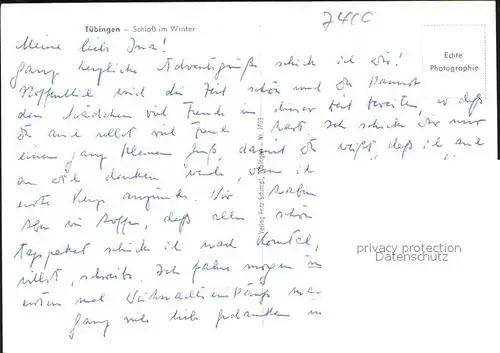 Tübingen – Schloß im Winter
74CC
Echte
Photographie
Meine liebe Ina!
ganz herzliche Adventsgrüße schick ich Dir!
Hoffentlich wird die Zeit schön und Du kannst
den Mädchen viel Freude in dieser Zeit bereiten, so daß
Du auch selbst viel Freude hast. Ich schicke Dir nur
einen ganz kleinen Gruß, damit Du weißt, daß ich auch
an Dich denken werde, wenn ich
erste Kerze anzünde. Wir haben
aber wir hoffen, daß alles schön
paket schicke ich nach
willst, schreibs. Ich fahre morgen in
ersten mal Weihnachtseinkäufe
ganz viele liebe Gedanken
Verlag Fritz Schimpf, Tübingen – Nr. 1703
privacy protection
Datenschutz